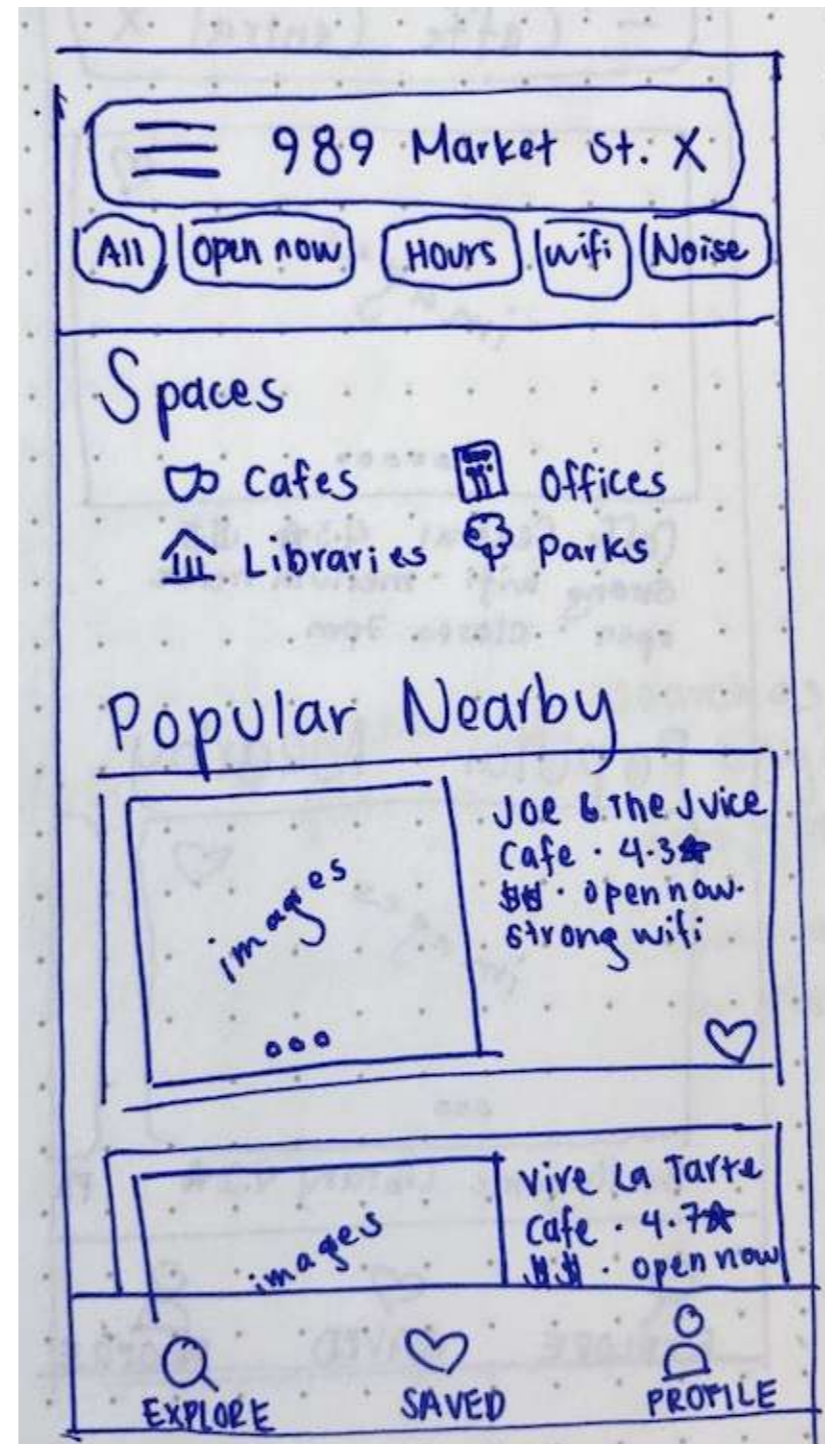 989 Market St. X
All Open now Hours Wifi Noise
Spaces
Cafes Offices
Libraries Parks
Popular Nearby
images
Joe & The Juice
Cafe · 4.3★
$$ · open now ·
strong wifi
images
Vive La Tarte
Cafe · 4.7★
$$ · open now
EXPLORE SAVED PROFILE